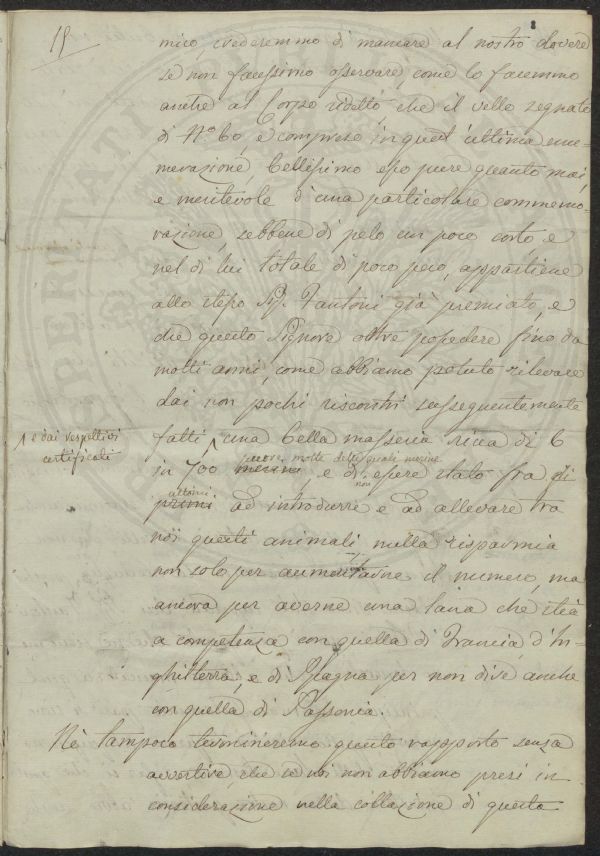 15
8
mico, crederemmo di mancare al nostro dovere
se non facessimo osservare, come lo facemmo
anche al Corpo ridetto, che il vello segnato
di N.o 60, e compreso in quest'ultima enu-
merazione, bellissimo esso pure quanto mai,
e meritevole d'una particolare commemo-
razione, sebbene di pelo un poco corto e
nel di lui totale di poco peso, appartiene
allo stesso Sig. Fantoni già premiato, e
che questo Signore oltre possedere fino da
molti anni, come abbiamo potuto rilevare
dai non pochi riscontri susseguentemente
e dai respettivi
certificati
fatti, una bella masseria ricca di 6
pecore molte delle quali merine
in 700 merini, e di non essere stato fra gli
ultimi
primi ad introdurre e ad allevare tra
noi questi animali nulla risparmia
non solo per aumentarne il numero, ma
ancora per averne una lana che stia
a competenza con quella di Francia, d'In-
ghilterra, e di Spagna per non dire anche
con quella di Sassonia
Nè tampoco termineremo questo rapporto senza
avvertire, che se noi non abbiamo presi in
considerazione nella collazione di questo